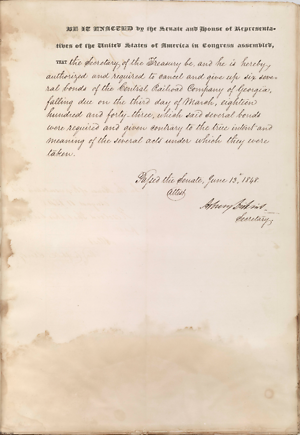 BE IT ENACTED by the Senate and House of Representa-
tives of the United States of America in Congress assembled,
THAT the Secretary of the Treasury be, and he is hereby,
authorized and required to cancel and give up six seve-
ral bonds of the Central Railroad Company of Georgia,
falling due on the third day of March, eighteen
hundred and forty-three, which said several bonds
were required and given contrary to the true intent and
meaning of the several acts under which they were
taken.
Passed the Senate, June 13, 1840.
Attest,
Secretary